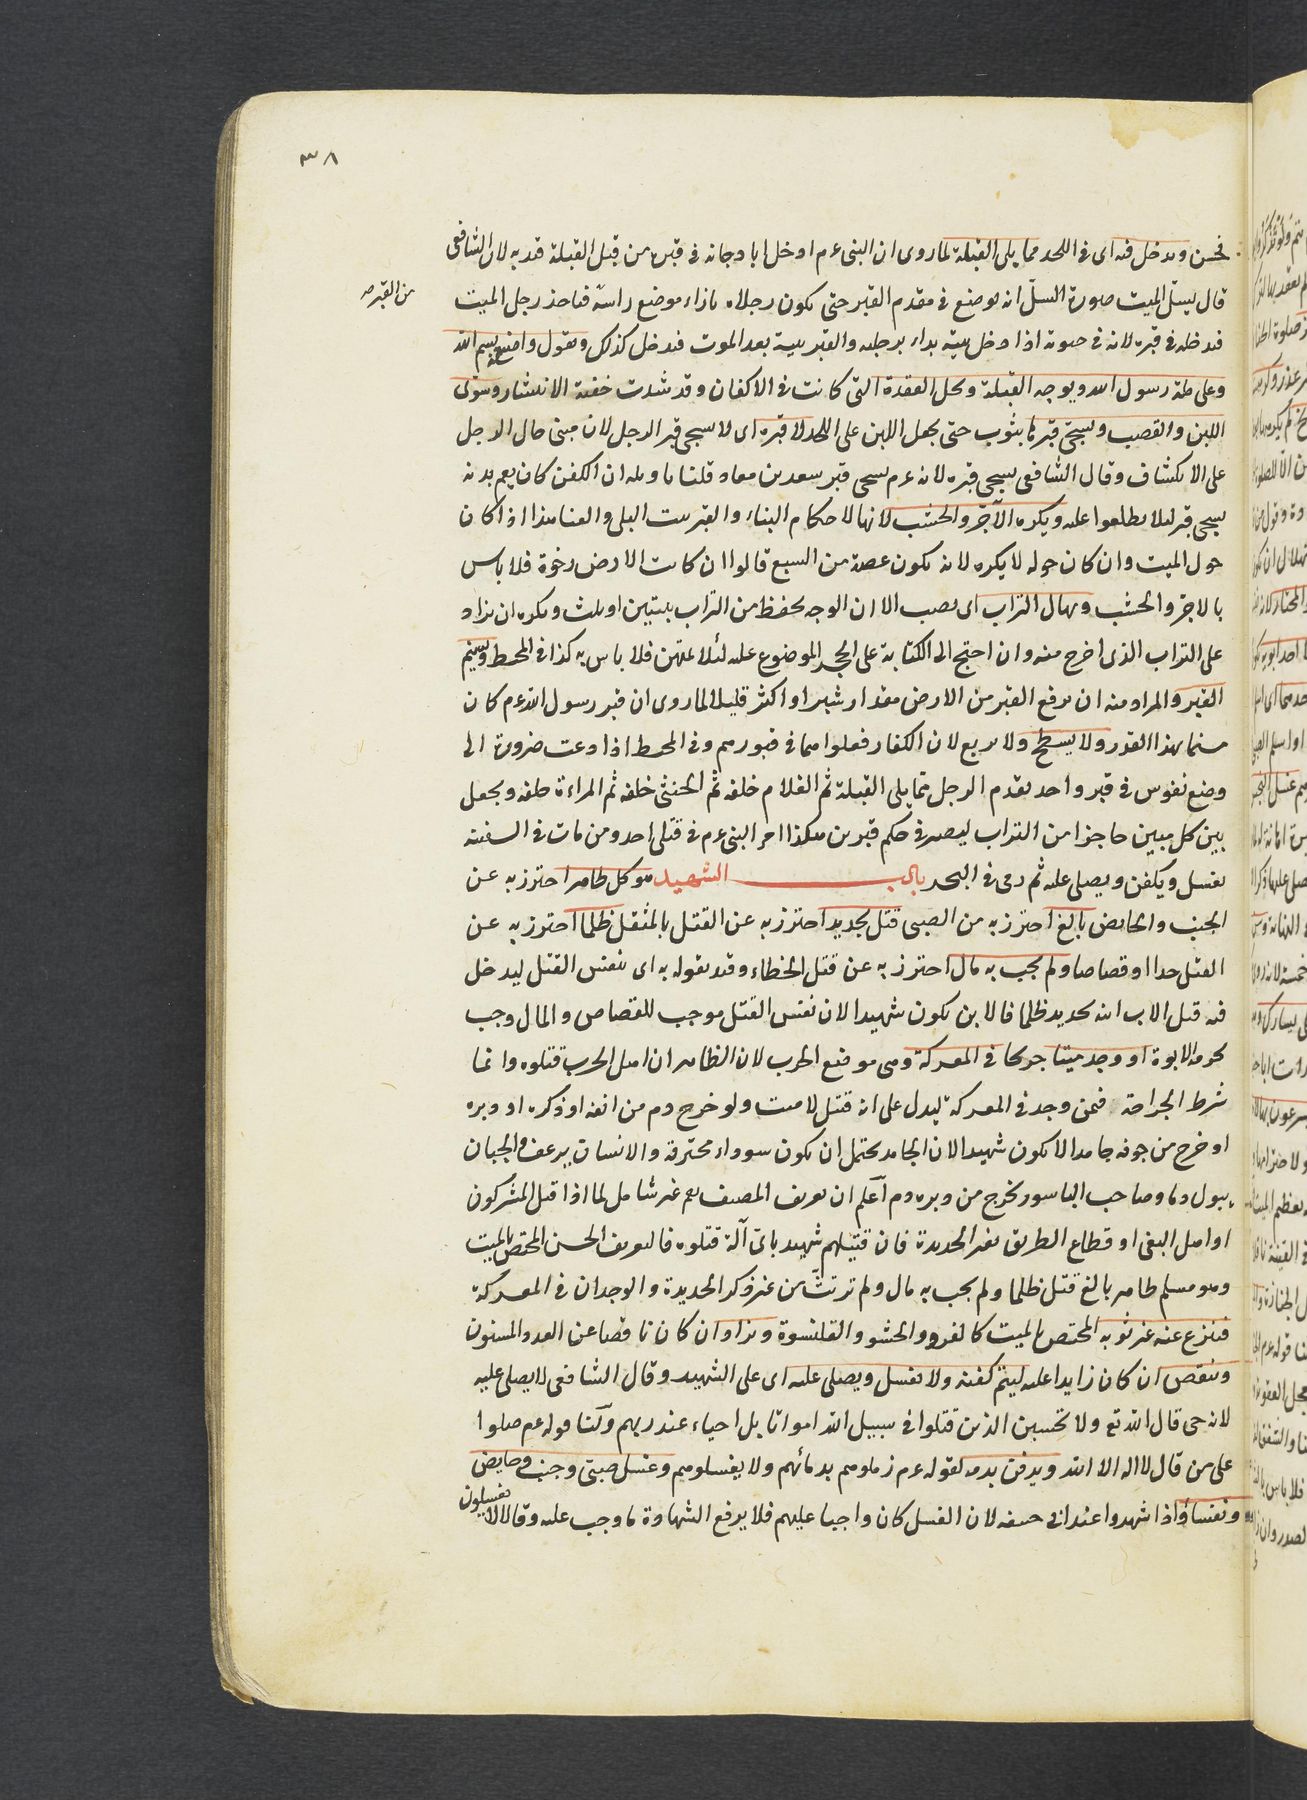 ٣٨
فحسن ويدخل فيه اى فى اللحد مما يلى القبلة لما روى ان النبى ع م ادخل ابا دجانة فى قبره من قبل القبلة قيد به لان الشافعى
قال يسلّ الميت صورة السلّ انه يوضع فى مقدم القبر حتى يكون رجلاه بازاء موضع راسه فياخذ رجل الميت
من القبر صح
فيدخله فى قبره لانه فى حيوته اذا دخل بيته بداء برجليه والقبر بيته بعد الموت فيدخل كذلك ويقول واضعه بسم الله
وعلى ملة رسول الله ويوجه القبلة ويحل العقدة التى كانت فى الاكفان وقد شدت خفية الانتشار ويسوى
اللبن والقصب ويسجى قبرها بثوب حتى يجعل اللبن على اللحد لا قبره اى لا يسجى قبر الرجل لان مبنى حال الرجل
على الانكشاف وقال الشافعى يسجى قبره لانه ع م سجى قبر سعد بن معاذ قلنا تاويله ان الكفن كان يعم بدنه
يسجى قبره لئلا يطلعوا عليه ويكره الآجر والخشب لانهما لاحكام البناء والقبر بيت البلى والفنا هذا اذا كان
حول الميت وان كان حوله لا يكره لانه يكون عصمة من السبع قالوا ان كانت الارض رخوة فلا باس
بالاجر والخشب ويهال التراب اى يصب الا ان الوجه يحفظ من التراب بلبنتين او ثلث ويكره ان يزاد
على التراب الذى اخرج منه وان احتيج الى الكتابة على الحجر الموضوع عليه لئلا يمتهن فلا باس به كذا فى المحيط ويسنم
القبر والمراد منه ان يرفع القبر من الارض مقدار شبر او اكثر قليلا لما روى ان قبر رسول الله ع م كان
مسنما بهذا القدر ولا يسطح ولا يربع لان الكفار فعلوا هما فى قبورهم وفى المحيط اذا دعت ضرورة الى
وضع نفوس فى قبر واحد يقدم الرجل مما يلى القبلة ثم الغلام خلفه ثم الخنثى خلفه ثم المراءة خلفه ويجعل
بين كل ميتين حاجزا من التراب ليصير فى حكم قبرين هكذا امر النبى ع م فى قتلى احد ومن مات فى السفينة
يغسل ويكفن ويصلى عليه ثم رمى فى البحر باب الشهيد هو كل طاهر احترز به عن
الجنب والحايض بالغ احترز به من الصبى قتل بحديد احترز به عن القتل بالمثقل ظلما احترز به عن
القتل حدا او قصاصا ولم يجب به مال احترز به عن قتل الخطاء وقيد بقوله به اى بنفس القتل ليدخل
فيه قتل الاب ابنه بحديد ظلما فالابن يكون شهيدا لان نفس القتل موجب للقصاص والمال وجب
بحرمة الابوة او وجد ميتا جريحا فى المعركة وهى موضع الحرب لان الظاهر ان اهل الحرب قتلوه وانما
شرط الجراحة فيمن وجد فى المعركة ليدل على انه قتيل لا ميت ولو خرج دم من انفه او ذكره او دبره
او خرج من جوفه جامدا لا يكون شهيدا لان الجامد يحتمل ان يكون سوداء محترقة والانسان يرعف والجبان
يبول دما وصاحب الباسور يخرج من دبره دم آعلم ان تعريف المصنف رحم غير شامل لما اذا قتل المشركون
او اهل البغى او قطاع الطريق بغير الحديدة فان قتيلهم شهيد باىّ آلة قتلوه فالتعريف الحسن المختص بالميت
وهو مسلم طاهر بالغ قتل ظلما ولم يجب به مال ولم ترتثّ من غير ذكر الحديدة والوجدان فى المعركة
فينزع عنه غير ثوبه المختص بالميت كالفرو والحشو والقلنسوة ويزاد ان كان ناقصا عن العدد المسنون
وينقص ان كان زايدا عليه ليتم كفنه ولا يغسل ويصلى عليه اى على الشهيد وقال الشافعى لا يصلى عليه
لانه حى قال الله تع ولا تحسبن الذين قتلوا فى سبيل الله امواتا بل احياء عند ربهم ولنا قوله ع م صلوا
على من قال لا اله الا الله ويدفن بدمه لقوله ع م زملوهم بدمائهم ولا يغسلوهم وغسل صبىّ وجنب وحايض
ونفساؤ اذا شهدوا عند ابى حنيفة لان الغسل كان واجبا عليهم فلا يرفع الشهادة ما وجب عليه وقالا لا يغسلون